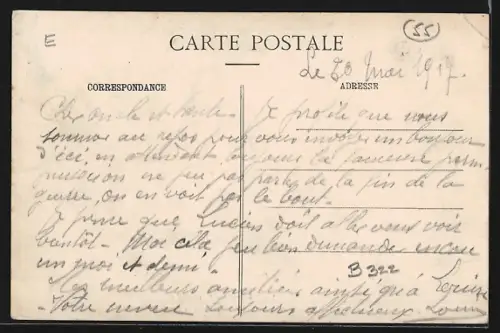 E
55
CARTE POSTALE
Le 20 Mai 1917
CORRESPONDANCE
ADRESSE
Cher oncle et tante - Je profite que nous
sommes au repos pour vous envoyer un bonjour
d'ici, en attendant toujours la permission
ne pas parler de la fin de la
guerre, on en voit pas le bout.
Je pense que Lucien doit aller vous voir
bientôt - Moi cela bien demander encore
un moi et demi.
Les meilleurs amitiés ainsi qu'à
Votre neveu toujours affectueux Louis
B 322